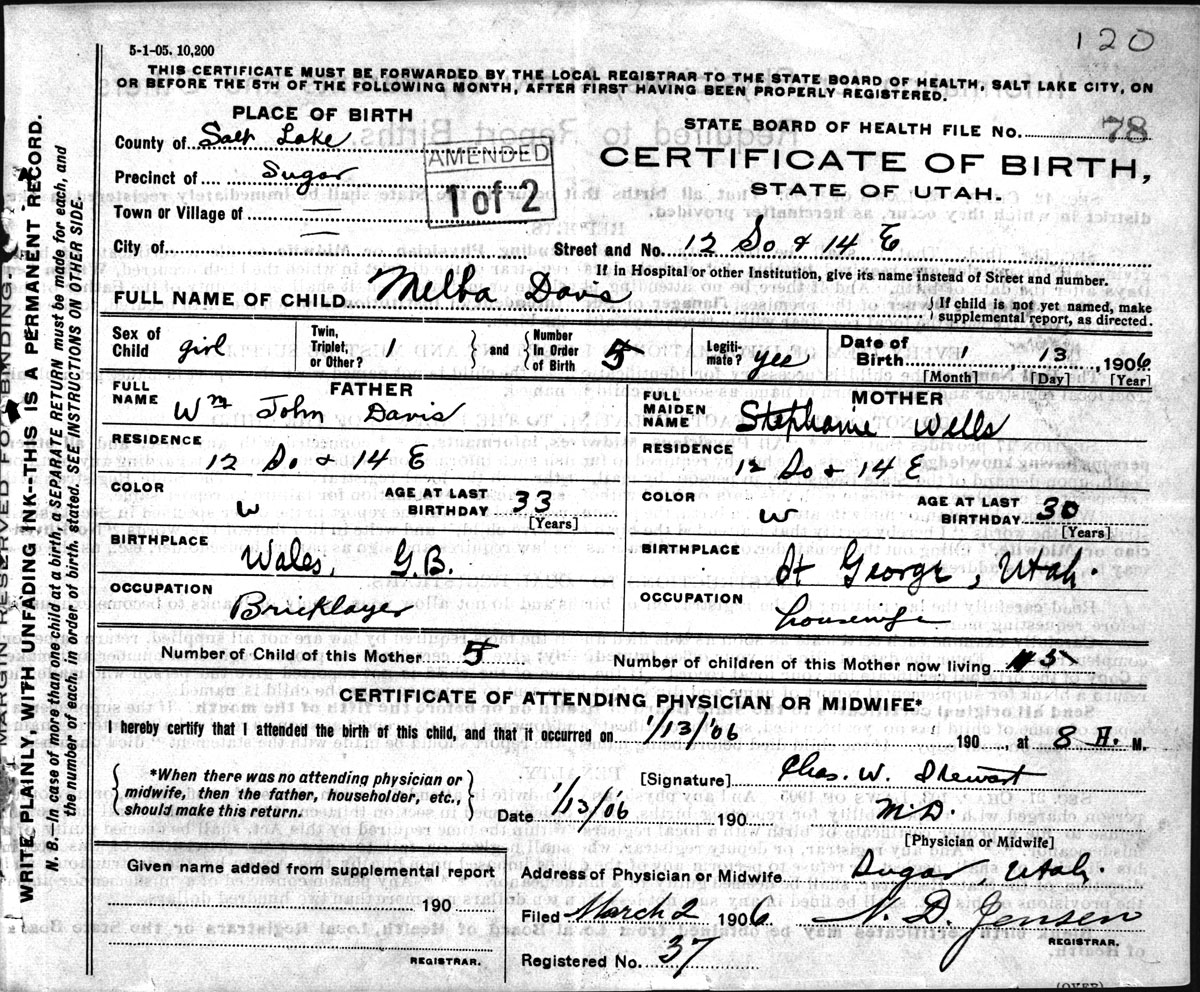 120
5-1-05. 10,200
THIS CERTIFICATE MUST BE FORWARDED BY THE LOCAL REGISTRAR TO THE STATE BOARD OF HEALTH, SALT LAKE CITY, ON
OR BEFORE THE 5TH OF THE FOLLOWING MONTH, AFTER FIRST HAVING BEEN PROPERLY REGISTERED.
PLACE OF BIRTH
County of Salt Lake
Precinct of Sugar
Town or Village of —
City of —
AMENDED
1 of 2
STATE BOARD OF HEALTH FILE No. 78
CERTIFICATE OF BIRTH,
STATE OF UTAH.
Street and No. 12 So & 14 E
If in Hospital or other Institution, give its name instead of Street and number.
FULL NAME OF CHILD. Melba Davis
If child is not yet named, make
supplemental report, as directed.
Sex of Child girl
Twin, Triplet, or Other? 1
and
Number In Order of Birth 5
Legiti-mate? yes
Date of Birth 1 13, 1906
[Month] [Day] [Year]
FATHER
FULL NAME Wm John Davis
RESIDENCE
12 So & 14 E
COLOR W
AGE AT LAST BIRTHDAY 33
[Years]
BIRTHPLACE
Wales, G.B.
OCCUPATION
Bricklayer
MOTHER
FULL MAIDEN NAME Stephanie Wells
RESIDENCE
12 So & 14 E
COLOR W
AGE AT LAST BIRTHDAY 30
[Years]
BIRTHPLACE
St George, Utah.
OCCUPATION
housewife
Number of Child of this Mother 5
Number of children of this Mother now living 5
CERTIFICATE OF ATTENDING PHYSICIAN OR MIDWIFE*
I hereby certify that I attended the birth of this child, and that it occurred on 1/13/'06 190 , at 8 A. M.
*When there was no attending physician or
midwife, then the father, householder, etc.,
should make this return.
[Signature] Chas. W. Stewart
Date 1/13/'06 190 M.D
[Physician or Midwife]
Given name added from supplemental report
190
REGISTRAR.
Address of Physician or Midwife Sugar, Utah.
Filed March 2 1906 N. D. Jensen
REGISTRAR.
Registered No. 37
MARGIN RESERVED FOR BINDING
WRITE PLAINLY, WITH UNFADING INK--THIS IS A PERMANENT RECORD.
N. B.—In case of more than one child at a birth, a SEPARATE RETURN must be made for each, and
the number of each, in order of birth, stated. SEE INSTRUCTIONS ON OTHER SIDE.